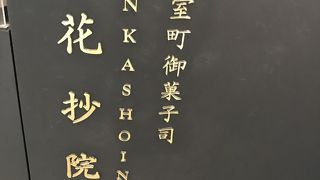 室町御菓子司
N KASHOIN
花抄院